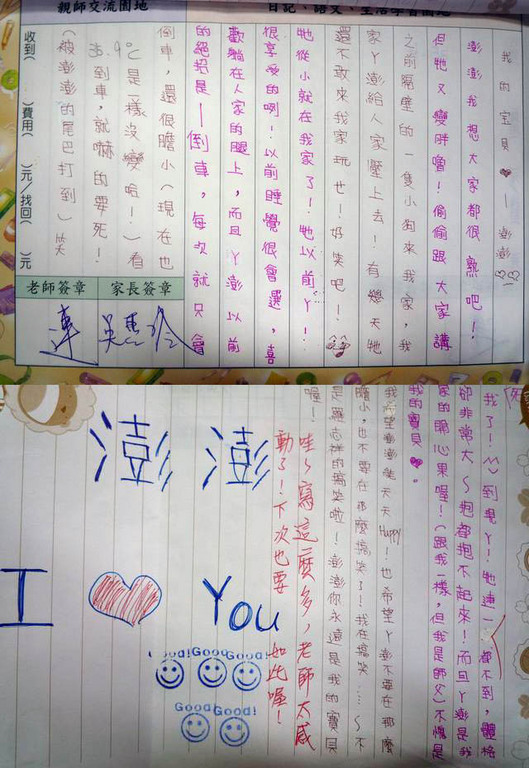 親師交流園地
日記、語文、生活學習園地
我的寶貝❤—澎澎
澎澎我想大家都很熟吧！
但牠又變胖嚕！偷偷跟大家講
之前隔壁的一隻小狗來我家，我
家ㄚ澎給人家壓上去！有幾天牠
還不敢來我家玩也！好笑吧！
牠從小就在我家了！牠以前ㄚ！
很享受的咧！以前睡覺很會選，喜
歡躺在人家的腿上，而且ㄚ澎以前
的絕招是—倒車，每次就只會
倒車，還很膽小（現在也
是一樣沒變啦！）看
到車，就嚇的要死！
（被澎澎的尾巴打到）笑
收到（ ）費用（ ）元/找回（ ）元
老師簽章
家長簽章
我了！到現ㄚ！牠連一都不到，體格
卻非常大～抱都抱不起來！而且ㄚ澎是我
家的開心果喔！（跟我一樣，但我是師父）不愧是
我的寶貝❤。
我希望澎澎能天天Happy！也希望ㄚ澎不要在那麼
膽小，也不要在那麼搞笑了！我在搞笑……～不
是羅志祥的搞笑啦！澎澎你永遠是我的寶貝
喔！
哇～寫這麼多，老師太感
動了！下次也要如此喔！
澎澎
I ❤ You
Good! Good! Good!
Good! Good!